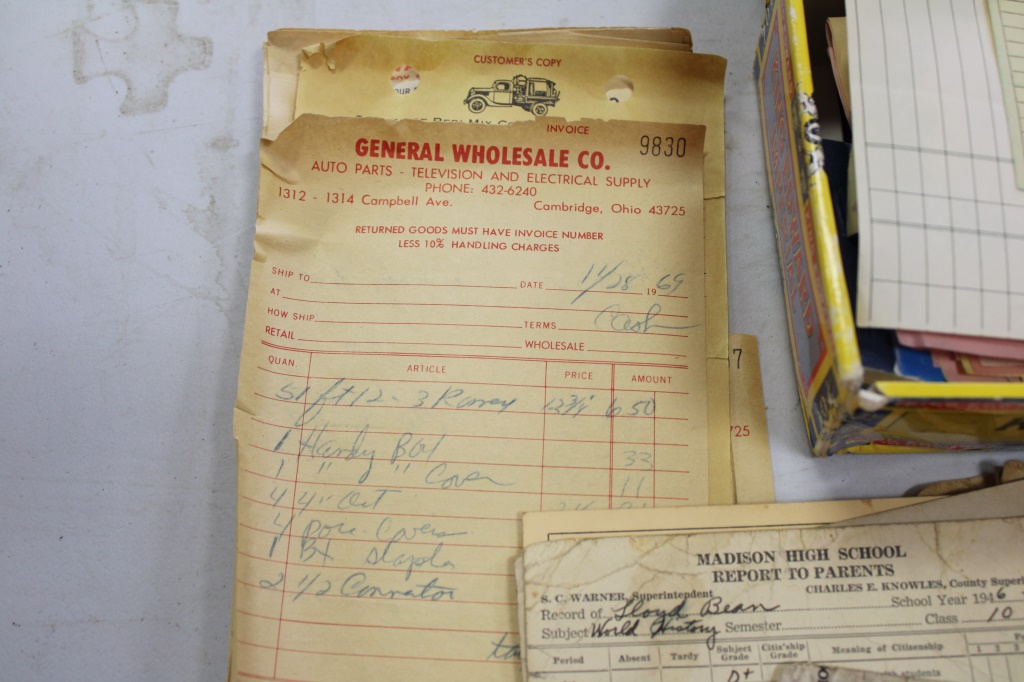 CUSTOMER'S COPY
INVOICE
9830
GENERAL WHOLESALE CO.
AUTO PARTS - TELEVISION AND ELECTRICAL SUPPLY
PHONE: 432-6240
1312 - 1314 Campbell Ave. Cambridge, Ohio 43725
RETURNED GOODS MUST HAVE INVOICE NUMBER
LESS 10% HANDLING CHARGES
SHIP TO DATE 11/28 1969
AT
HOW SHIP TERMS Cash
RETAIL WHOLESALE
QUAN. ARTICLE PRICE AMOUNT
51 ft 12-3 Romex 6 50
1 Handy Box 33
1 " " Cover 11
4 4" Oct
4 porc. Covers
1 Bx Staple
2 1/2 Connator
7
725
MADISON HIGH SCHOOL
REPORT TO PARENTS
S. C. WARNER, Superintendent CHARLES E. KNOWLES, County Superi
Record of Lloyd Bean School Year 1946
Subject World History Semester Class 10
Period Absent Tardy Subject Grade Citiz'ship Grade Meaning of Citizenship 1 2 3
D+ students